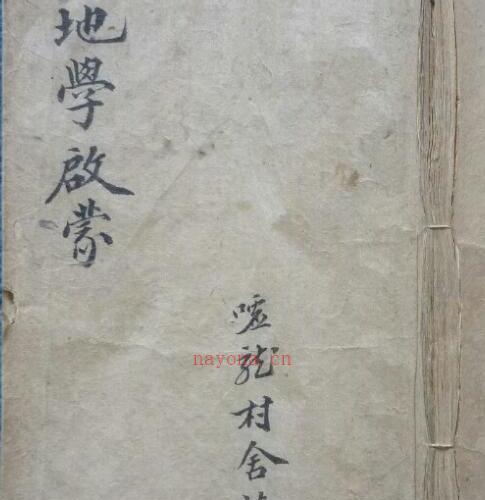 地學啟蒙
嘘龍村舍
nayona.cn